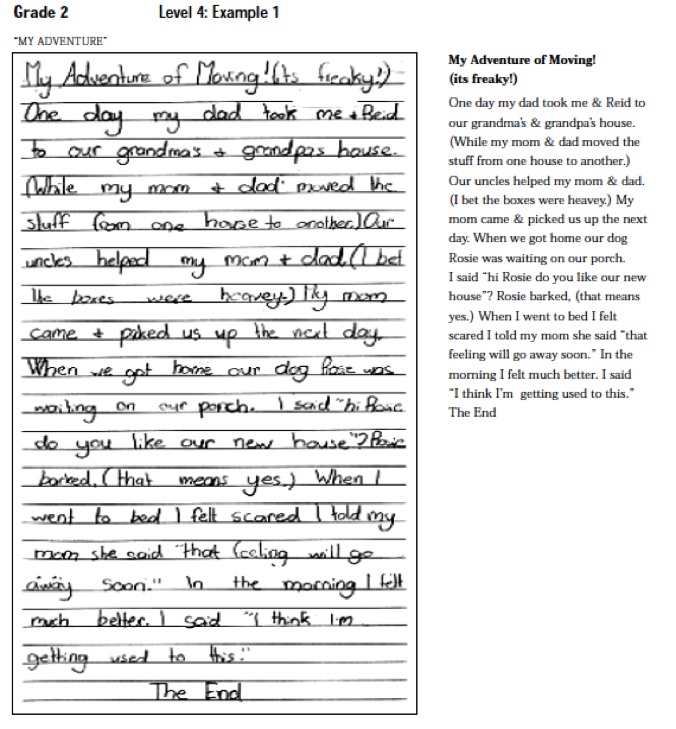 Grade 2 Level 4: Example 1
"MY ADVENTURE"
My Adventure of Moving! (its freaky!)
One day my dad took me & Reid
to our grandma's & grandpas house.
(While my mom & dad moved the
stuff from one house to another.) Our
uncles helped my mom & dad. (I bet
the boxes were heavey.) My mom
came & piked us up the next day.
When we got home our dog Rosie was
waiting on our porch. I said "hi Rosie
do you like our new house"? Rosie
barked, (that means yes.) When I
went to bed I felt scared I told my
mom she said "that feeling will go
away soon." In the morning I felt
much better. I said "I think I'm
getting used to this."
The End
My Adventure of Moving!
(its freaky!)
One day my dad took me & Reid to
our grandma's & grandpa's house.
(While my mom & dad moved the
stuff from one house to another.)
Our uncles helped my mom & dad.
(I bet the boxes were heavey.) My
mom came & picked us up the next
day. When we got home our dog
Rosie was waiting on our porch.
I said "hi Rosie do you like our new
house"? Rosie barked, (that means
yes.) When I went to bed I felt
scared I told my mom she said "that
feeling will go away soon." In the
morning I felt much better. I said
"I think I'm getting used to this."
The End